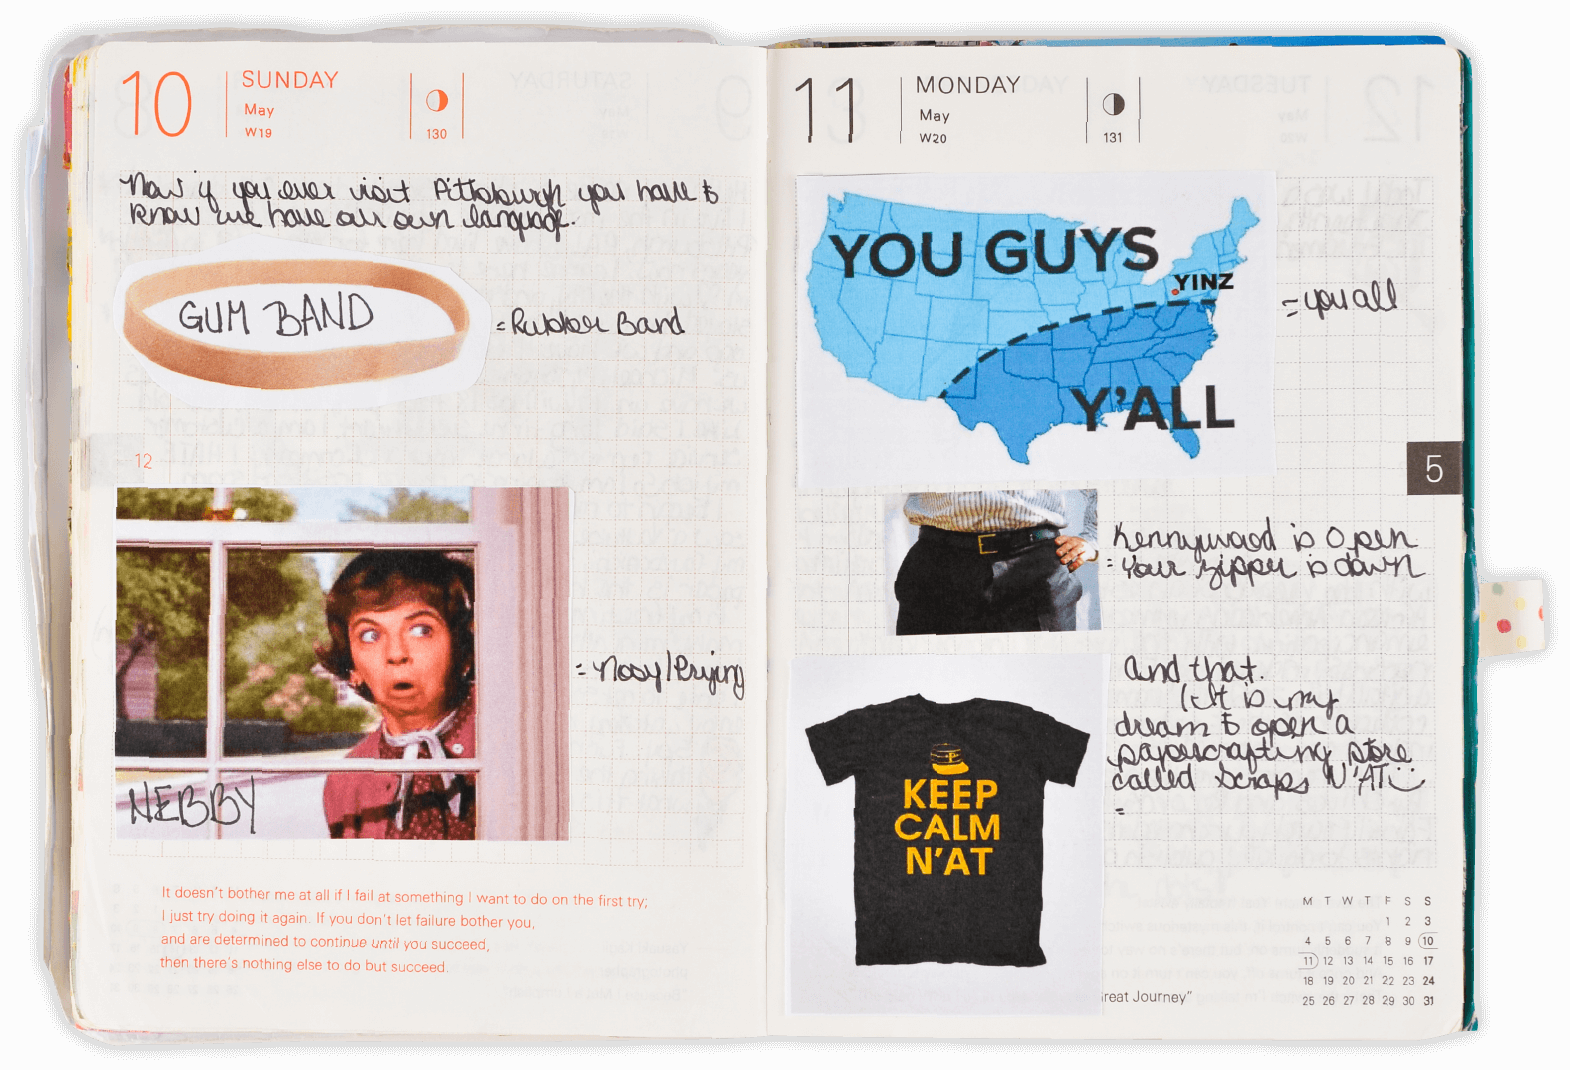 10
SUNDAY
May
W19
130
Now if you ever visit Pittsburgh you have to
know we have our own language.
GUM BAND
= Rubber Band
12
NEBBY
= Nosy/Prying
It doesn't bother me at all if I fail at something I want to do on the first try;
I just try doing it again. If you don't let failure bother you,
and are determined to continue until you succeed,
then there's nothing else to do but succeed.
11
MONDAY
May
W20
131
YOU GUYS
YINZ
Y'ALL
= you all
5
Kennywood is Open
= Your zipper is down
KEEP
CALM
N'AT
and that.
(It is my
dream to open a
papercrafting store
called Scraps N'AT
=
reat Journey"
M T W T F S S
1 2 3
4 5 6 7 8 9 10
11 12 13 14 15 16 17
18 19 20 21 22 23 24
25 26 27 28 29 30 31